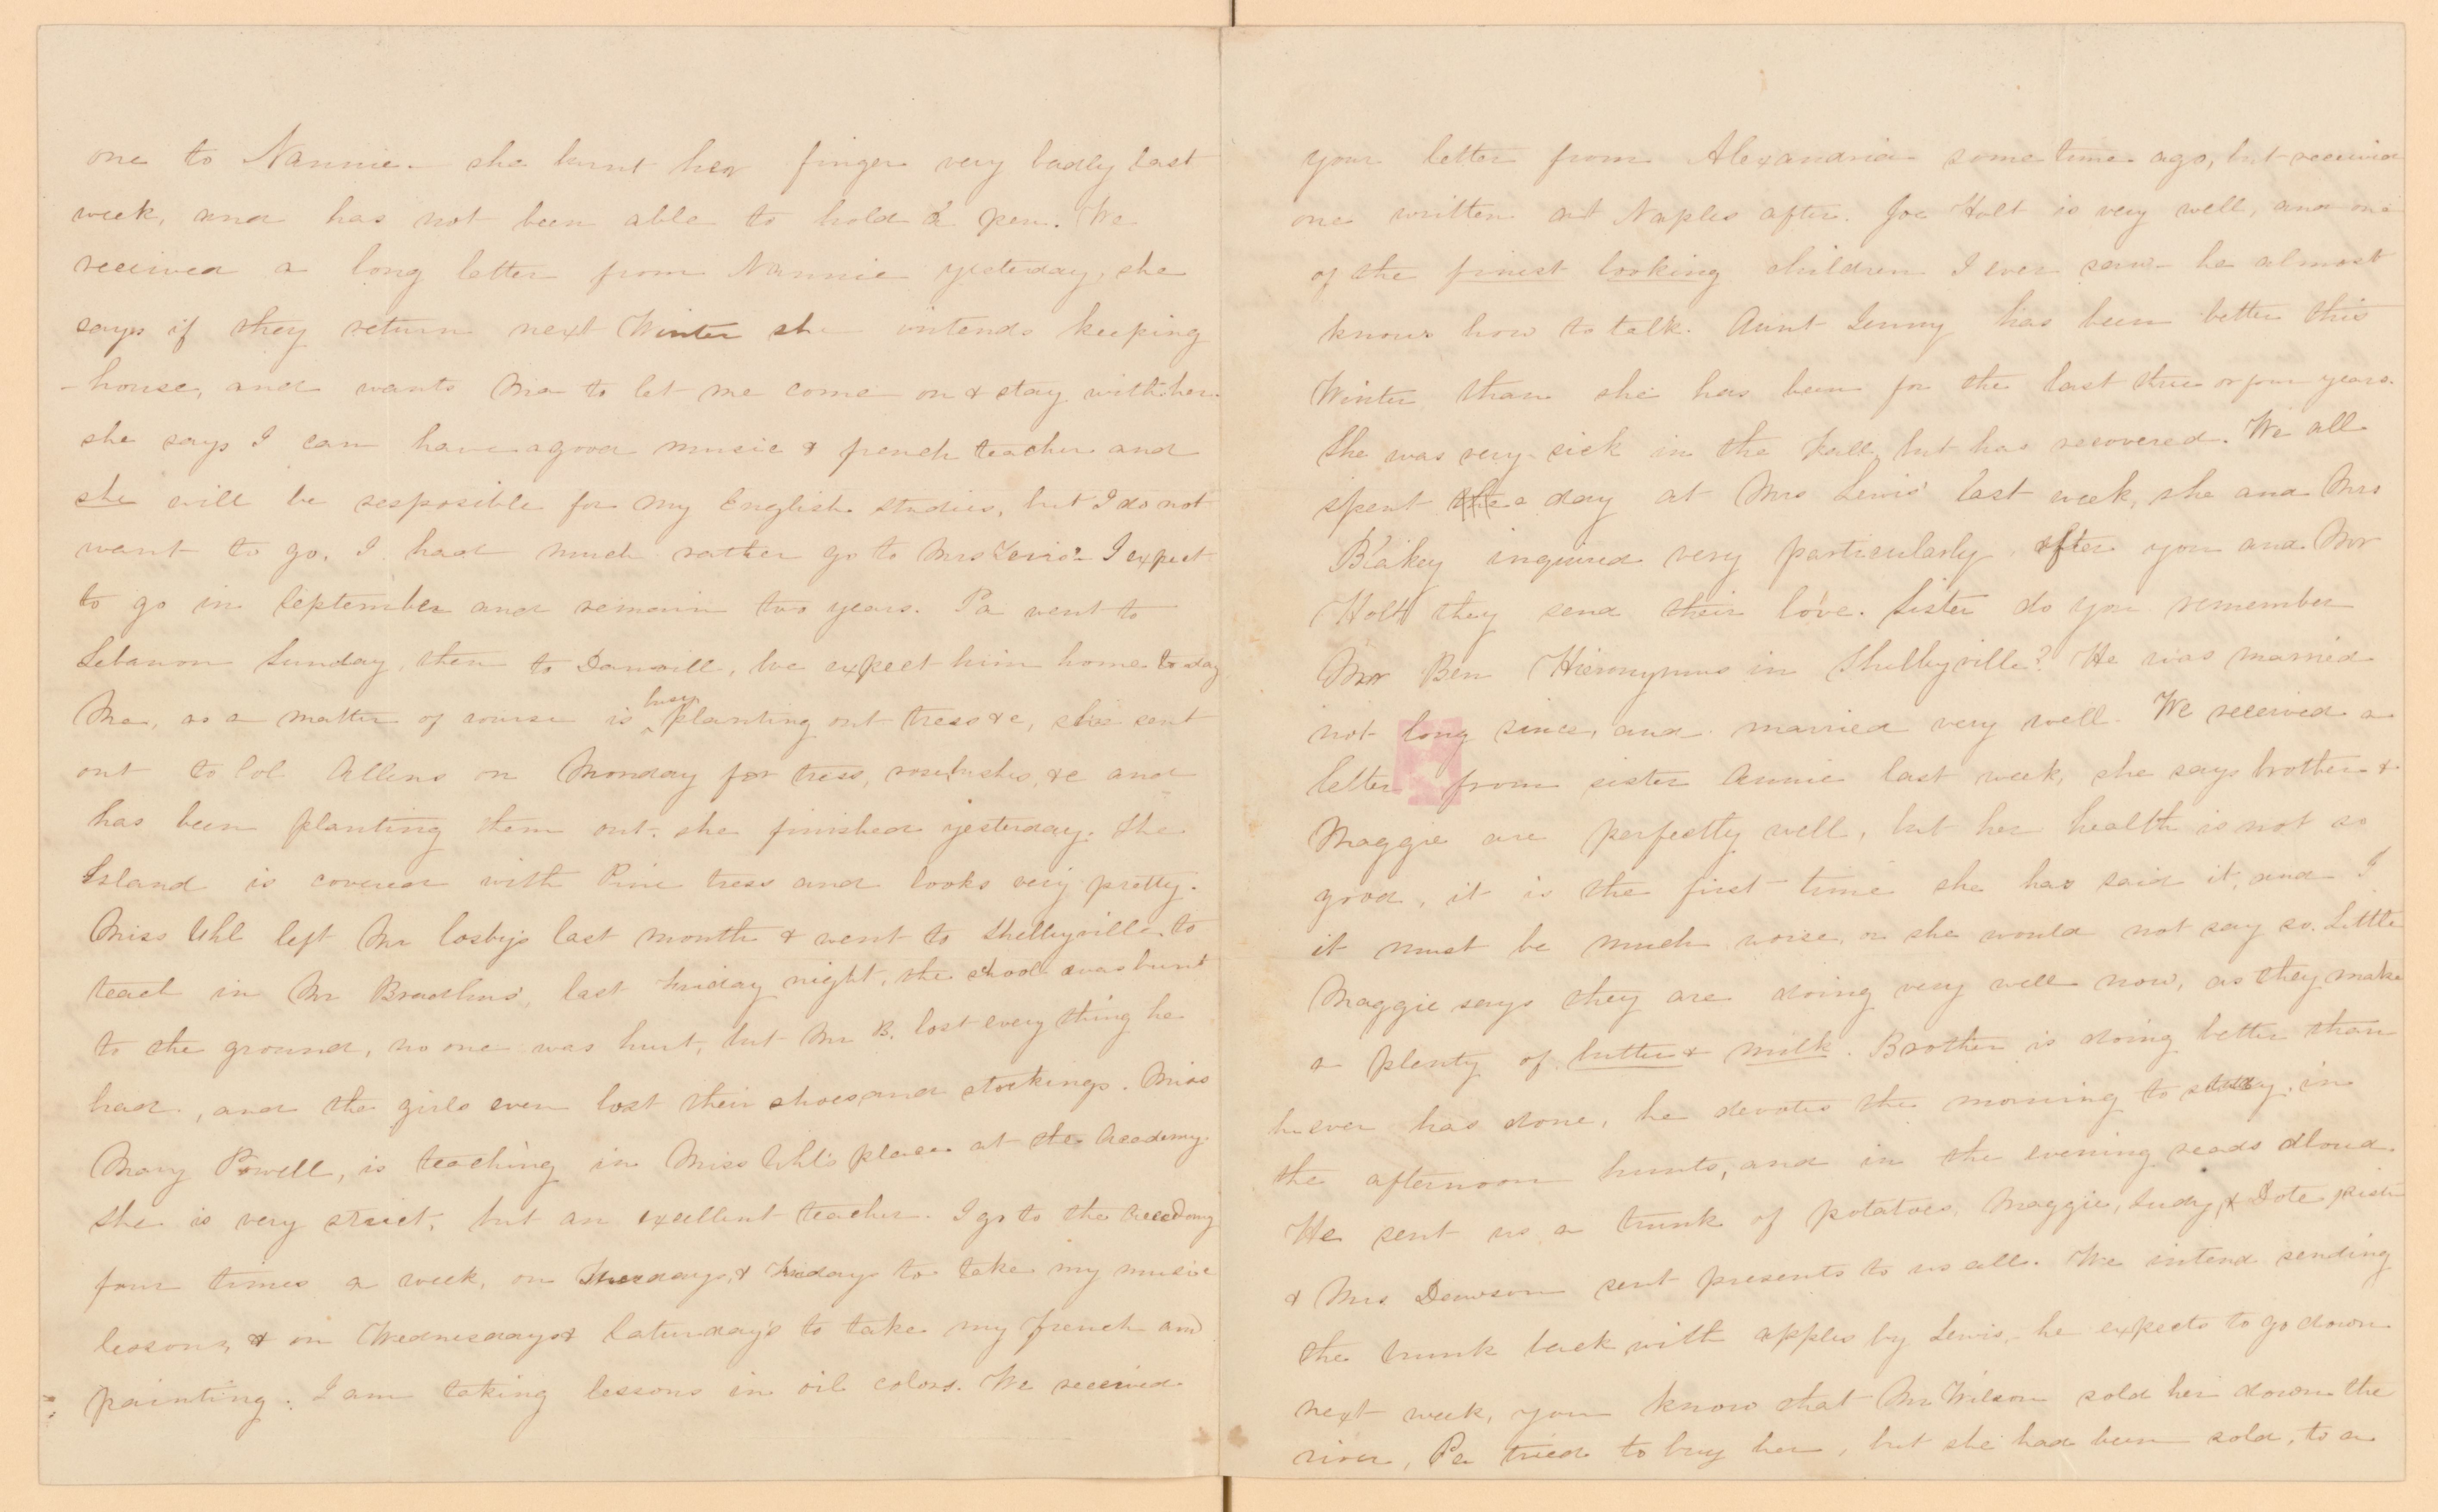 one to Nannie. she burnt her finger very badly last
week, and has not been able to hold a pen. We
received a long letter from Nannie yesterday, she
says if they return next Winter she intends keeping
-house, and wants Ma to let me come on & stay with her.
she says I can have a good music & french teacher and
she will be resposible for my English studies, but I do not
want to go. I had much rather go to Mrs Lewis' I expect
to go in September and remain two years. Pa went to
Lebanon Sunday, then to Danvill, we expect him home to day
Ma, as a matter of course is busy planting out tress &c, she sent
out to Col Allens on Monday for tress, rosebushes, &c and
has been planting them out. she finished yesterday. The
Island is covered with Pine tress and looks very pretty.
Miss Uhl left Mr Cosby's last month & went to Shelbyville to
teach in Mr last Friday night, the shool was burnt
to the ground, no one was hurt, but Mr B. lost every thing he
had, and the girls even lost their shoes and stockings. Miss
Mary Powell, is teaching in Miss Uhl's place at the Academy.
she is very strict, but an excellent teacher. I go to the
four times a week, on Tuesdays, & Fridays to take my music
lessons, & on Wednesdays & Saturday's to take my french and
painting. I am taking lessons in oil colors. We received
your letter from Alexandria some time ago, but received
one written at Naples after. Joe Holt is very well, and one
of the finest looking children I ever saw he almost
knows how to talk. Aunt Jenny has been better this
Winter than she has been for the last three or four years.
She was very sick in the Fall, but has recovered. We all
spent the a day at Mrs Lewis' last week, she and Mrs
Blakey inquired very particularly after you and Mr
Holt they send their love. Sister do you remember
Mr Ben Hieronymus in Shelbyville? He was married
not long since, and married very well. We received a
letter from sister Annie last week, she says brother &
Maggie are perfectly well, but her health is not so
good, it is the first time she has said it, and I
it must be much worse, or she would not say so. Little
Maggie says they are doing very well now, as they make
a plenty of butter & milk. Brother is doing better than
he ever has done, he devotes the morning to study, in
the afternoon hunts, and in the evening reads aloud.
He sent us a trunk of potatoes. Maggie, Judy, & Dote
& Mrs Dawson sent presents to us all. We intend sending
the trunk back with apples by Lewis, he expects to go down
next week, you know that Mr Wilson sold her down the
river, Pa tried to buy her, but she had been sold, to a